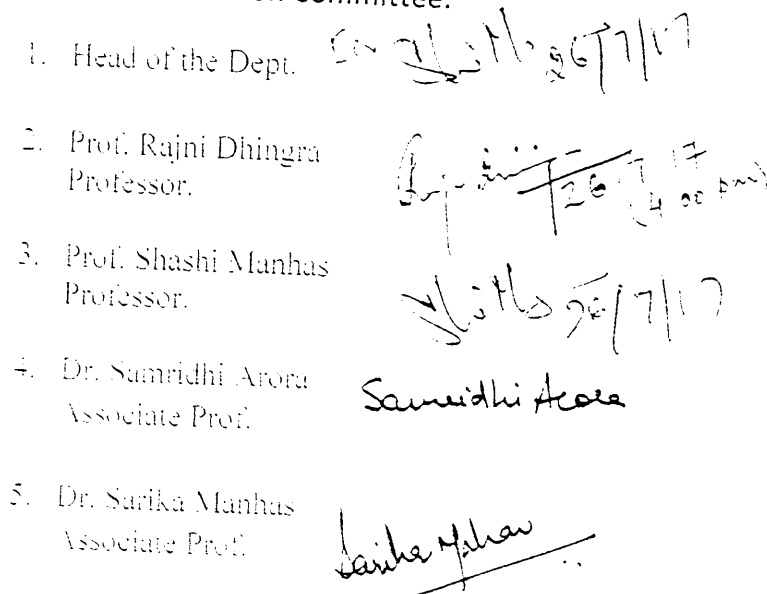 Committee.
1. Head of the Dept. 26/7/17
2. Prof. Rajni Dhingra
Professor. 26 7 17
(4 00 pm)
3. Prof. Shashi Manhas
Professor. 26/7/17
4. Dr. Samridhi Arora
Associate Prof. Samridhi Arora
5. Dr. Sarika Manhas
Associate Prof. Sarika Manhas